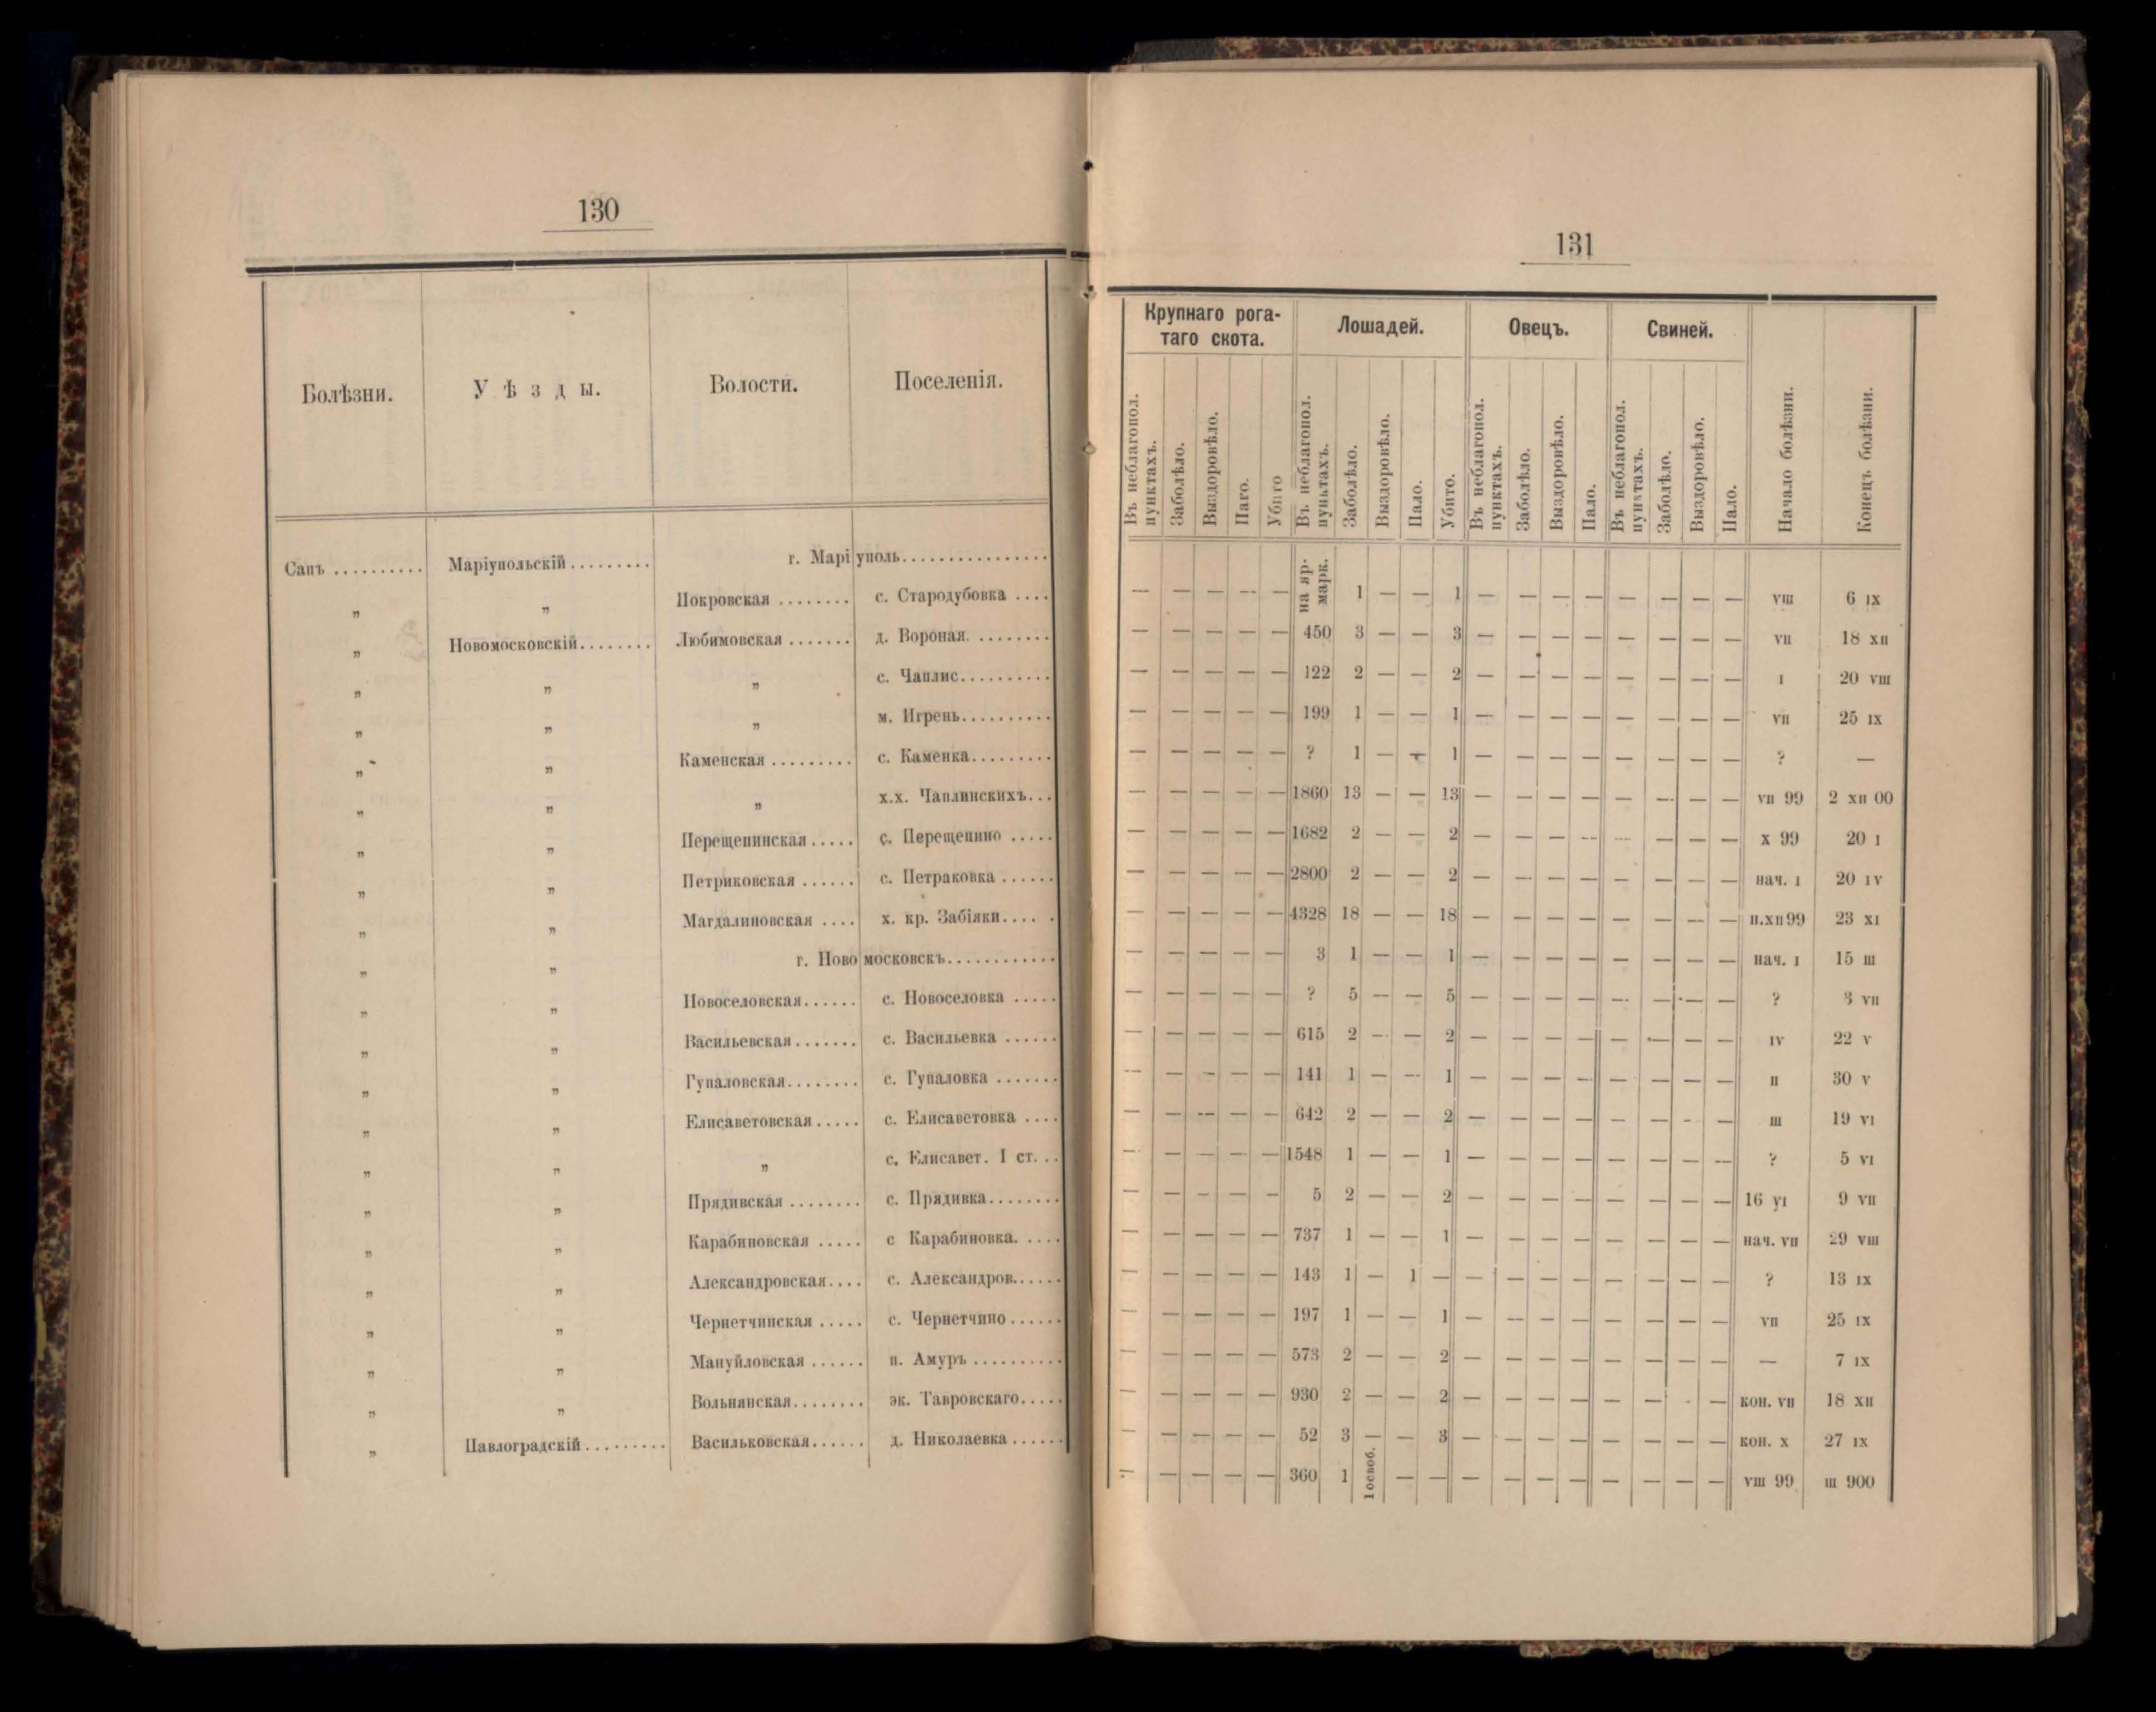 130
Болѣзни. Уѣзды. Волости. Поселенія.
Сапъ .......... Маріупольскій ......... г. Маріуполь................
„ „ Покровская ........ с. Стародубовка ....
„ Новомосковскій........ Любимовская ....... д. Вороная. ........
„ „ „ с. Чаплис..........
„ „ „ м. Игрень..........
„ „ Каменская ......... с. Каменка.........
„ „ „ х.х. Чаплинскихъ...
„ „ Перещепинская ..... с. Перещепино .....
„ „ Петриковская ...... с. Петраковка ......
„ „ Магдалиновская .... х. кр. Забіяки.... .
„ „ г. Новомосковскъ............
„ „ Новоселовская...... с. Новоселовка .....
„ „ Васильевская....... с. Васильевка ......
„ „ Гупаловская........ с. Гупаловка .......
„ „ Елисаветовская ..... с. Елисаветовка ....
„ „ „ с. Елисавет. I ст. ..
„ „ Прядивская ........ с. Прядивка........
„ „ Карабиновская ..... с Карабиновка. ....
„ „ Александровская.... с. Александров......
„ „ Чернетчинская ..... с. Чернетчино ......
„ „ Мануйловская ...... п. Амуръ ..........
„ „ Вольнянская........ эк. Тавровскаго.....
„ Павлоградскій ......... Васильковская...... д. Николаевка ......
131
Крупнаго рога-
таго скота. Лошадей. Овецъ. Свиней.
Въ неблагопол. пунктахъ. Заболѣло. Выздоровѣло. Паго. Убито Въ неблагопол. пунктахъ. Заболѣло. Выздоровѣло. Пало. Убито. Въ неблагопол. пунктахъ. Заболѣло. Выздоровѣло. Пало. Въ неблагопол. пунктахъ. Заболѣло. Выздоровѣло. Пало. Начало болѣзни. Конецъ болѣзни.
— — — — — на яр-марк. 1 — — 1 — — — — — — — — VIII 6 IX
— — — — — 450 3 — — 3 — — — — — — — — VII 18 XII
— — — — — 122 2 — — 2 — — — — — — — — I 20 VIII
— — — — — 199 1 — — 1 — — — — — — — — VII 25 IX
— — — — — ? 1 — — 1 — — — — — — — — ? —
— — — — — 1860 13 — — 13 — — — — — — — — VII 99 2 XII 00
— — — — — 1682 2 — — 2 — — — — — — — — X 99 20 I
— — — — — 2800 2 — — 2 — — — — — — — — нач. I 20 IV
— — — — — 4328 18 — — 18 — — — — — — — — н.XII99 23 XI
— — — — — 3 1 — — 1 — — — — — — — — нач. I 15 III
— — — — — ? 5 — — 5 — — — — — — — — ? 3 VII
— — — — — 615 2 — — 2 — — — — — — — — IV 22 V
— — — — — 141 1 — — 1 — — — — — — — — II 30 V
— — — — — 642 2 — — 2 — — — — — — — — III 19 VI
— — — — — 1548 1 — — 1 — — — — — — — — ? 5 VI
— — — — — 5 2 — — 2 — — — — — — — — 16 VI 9 VII
— — — — — 737 1 — — 1 — — — — — — — — нач. VII 29 VIII
— — — — — 143 1 — 1 — — — — — — — — — ? 13 IX
— — — — — 197 1 — — 1 — — — — — — — — VII 25 IX
— — — — — 573 2 — — 2 — — — — — — — — — 7 IX
— — — — — 930 2 — — 2 — — — — — — - — кон. VII 18 XII
— — — — — 52 3 — — 3 — — — — — — — — кон. X 27 IX
— — — — — 360 1 1 освоб. — — — — — — — — — — VIII 99 III 900